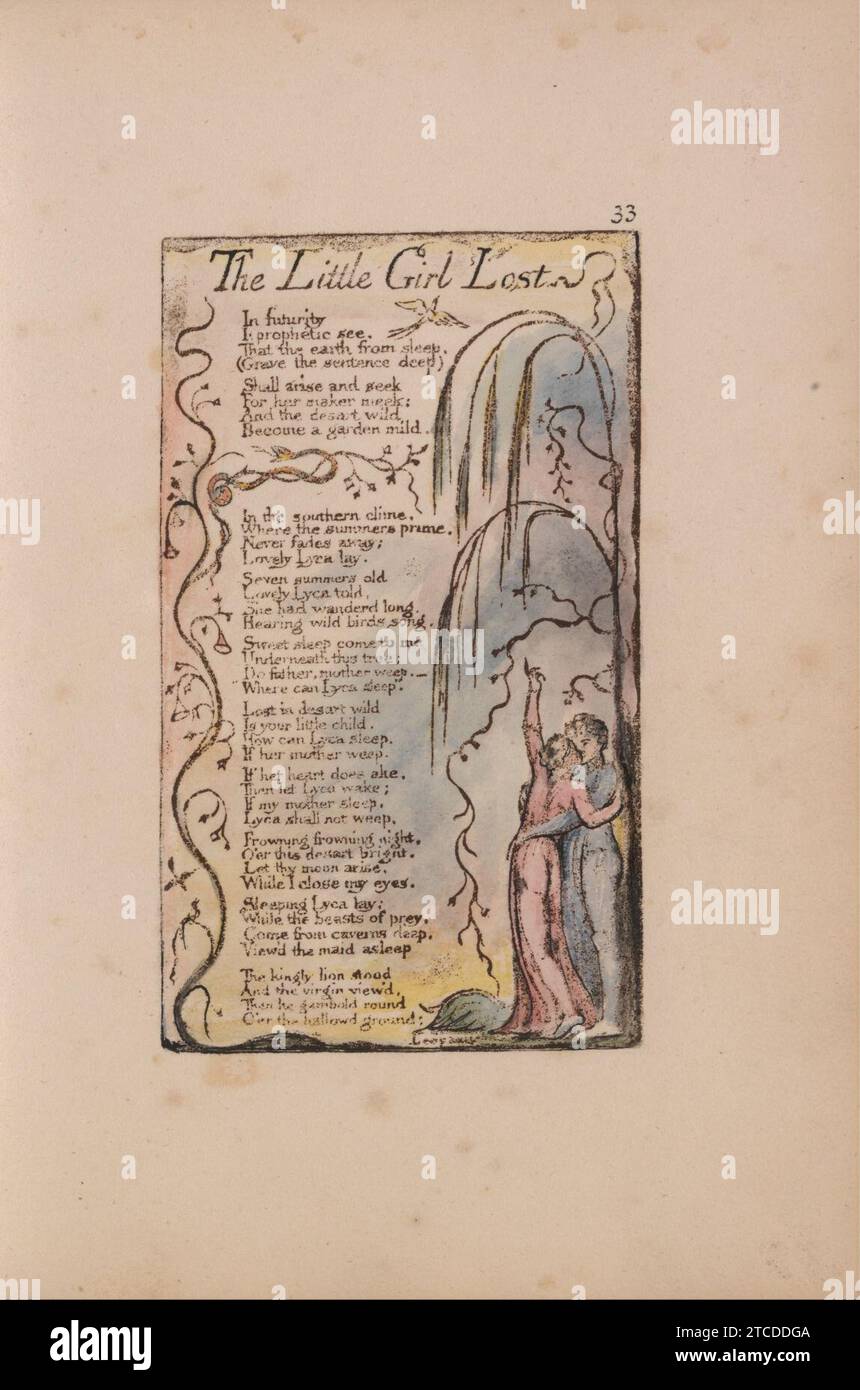 33
The Little Girl Lost
In futurity
I prophetic see,
That the earth from sleep,
(Grave the sentence deep)
Shall arise and seek
For her maker meek:
And the desart wild
Become a garden mild.
In the southern clime,
Where the summers prime,
Never fades away;
Lovely Lyca lay.
Seven summers old
Lovely Lyca told,
She had wanderd long,
Hearing wild birds song.
Sweet sleep come to me
Underneath this tree;
Do father, mother weep.—
"Where can Lyca sleep".
Lost in desart wild
Is your little child.
How can Lyca sleep,
If her mother weep.
If her heart does ake,
Then let Lyca wake;
If my mother sleep,
Lyca shall not weep.
Frowning frowning night,
O'er this desart bright,
Let thy moon arise,
While I close my eyes.
Sleeping Lyca lay;
While the beasts of prey,
Come from caverns deep,
View'd the maid asleep
The kingly lion stood
And the virgin view'd,
Then he gambold round
O'er the hallowd ground;
Leopards
a
alamy
alamy
Image ID: 2TCDDGA
www.alamy.com